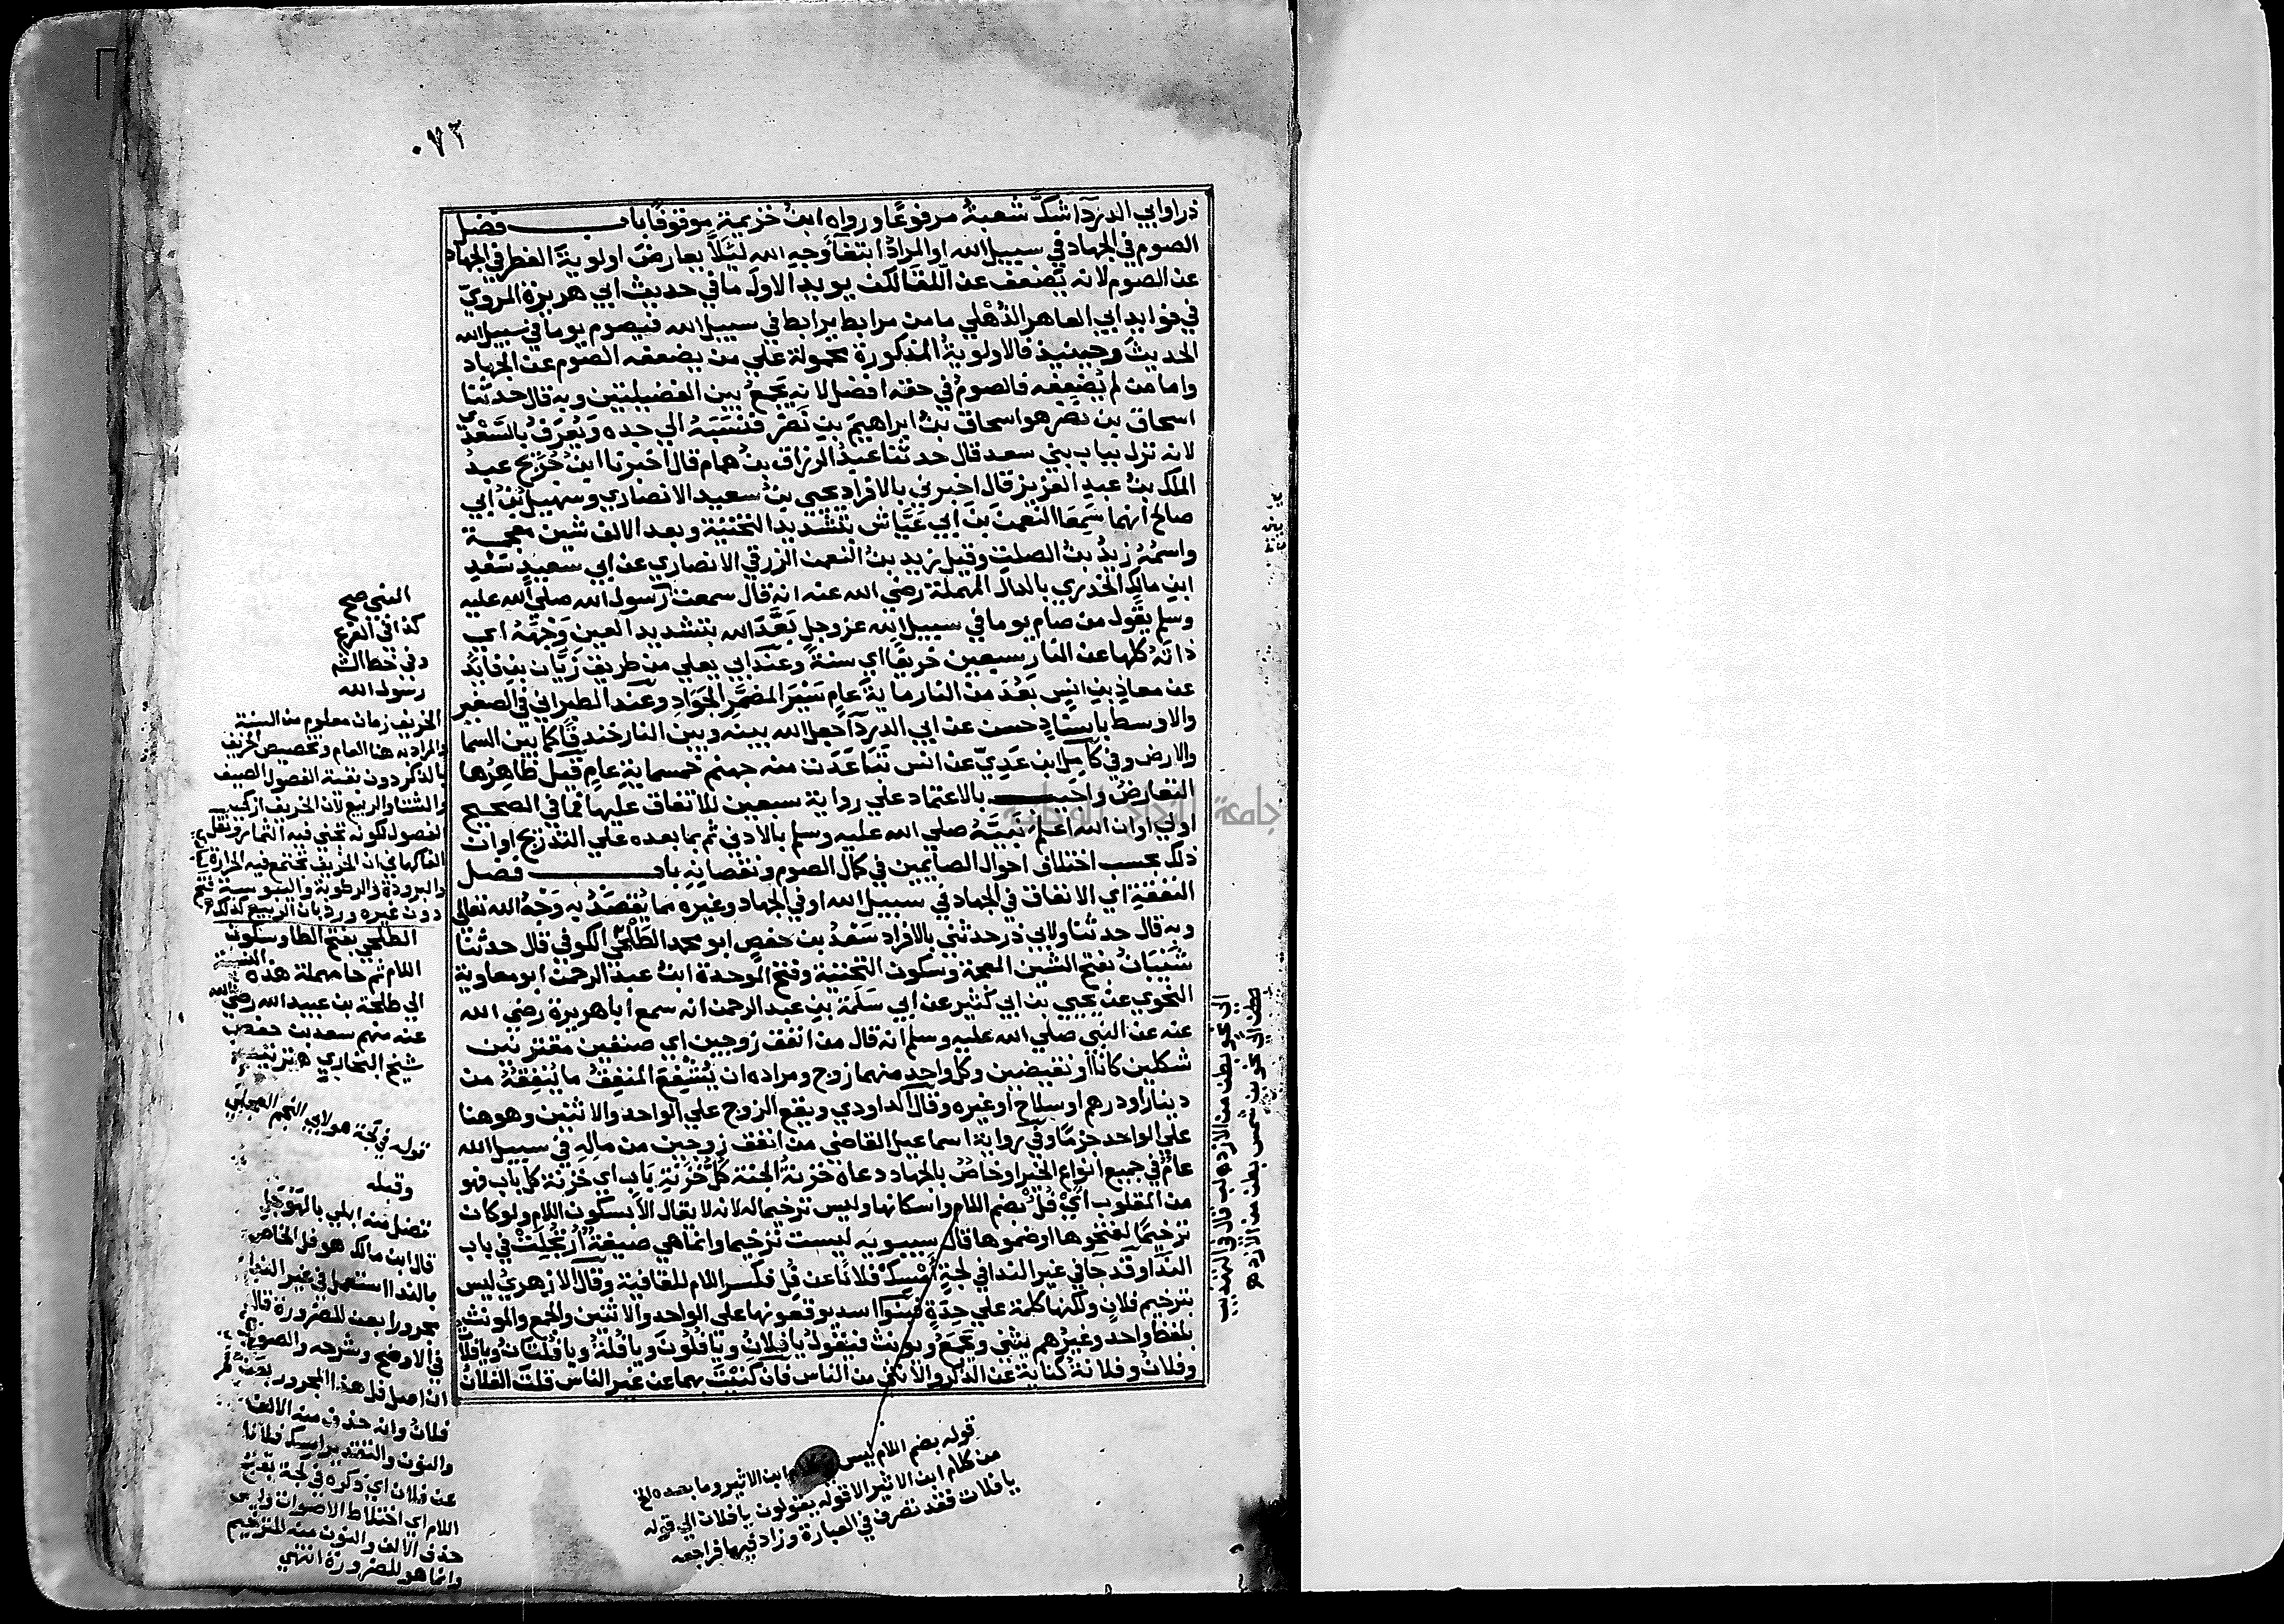 ٠٧٢
ذر او ابي الدردآ شك شعبة مرفوعا ورواه ابن خزيمة موقوفا باب فضل
الصوم في الجهاد في سبيل الله او المراد ابتغآ وجه الله ليلا يعارض اولوية الفطر في الجهاد
عن الصوم لانه يضعف عن اللقا لكن يويد الاول ما في حديث ابي هريرة المروي
في فوايد ابي الطاهر الذهلي ما من مرابط يرابط في سبيل الله فيصوم يوما في سبيل الله
الحديث وحينيذ فالاولوية المذكورة محمولة علي من يضعفه الصوم عن الجهاد
واما من لم يضعفه فالصوم في حقه افضل لانه يجمع بين الفضيلتين وبه قال حدثنا
اسحاق بن نصر هو اسحاق بن ابراهيم بن نصر فنسبه الي جده ويعرف بالسعدي
لانه نزل بباب بني سعد قال حدثنا عبد الرزاق بن همام قال اخبرنا ابن جريج عبد
الملك بن عبد العزيز قال اخبرني بالافراد يحيي بن سعيد الانصاري وسهيل بن ابي
صالح انهما سمعا النعمن بن ابي عياش بتشديد التحتية وبعد الالف شين معجمة
واسمه زيد بن الصلت وقيل زيد بن النعمن الزرقي الانصاري عن ابي سعيد سعد
ابن مالك الخدري بالدال المهملة رضي الله عنه انه قال سمعت رسول الله صلي الله عليه
وسلم يقول من صام يوما في سبيل الله عز وجل بعد الله بتشديد العين وجهه اي
ذاته كلها عن النار سبعين خريفا اي سنة وعند ابي يعلي من طريق زيان بن فائد
عن معاذ بن انس بعد من النار ماية عام سير المضمر الجواد وعند الطبراني في الصغير
والاوسط باسناد حسن عن ابي الدردآ جعل الله بينه وبين النار خندقا كما بين السما
والارض وفي كامل ابن عدي عن انس تباعدت منه جهنم خمسماية عام قيل ظاهرها
التعارض واجيب بالاعتماد علي رواية سبعين للاتفاق عليها فما في الصحيح
اولي او ان الله اعلم نبيه صلي الله عليه وسلم بالادني ثم بما بعده علي التدريج او ان
ذلك بحسب اختلاف احوال الصايمين في كمال الصوم ونقصانه باب فضل
النفقة اي الانفاق في الجهاد في سبيل الله او في الجهاد وغيره مما يقصد به وجه الله تعالي
وبه قال حدثنا ولابي ذر حدثني بالافراد سعد بن حفص ابو محمد الطلحي الكوفي قال حدثنا
شيبان بفتح الشين المعجمة وسكون التحتية وفتح الموحدة ابن عبد الرحمن ابو معاوية
النحوي عن يحيي بن ابي كثير عن ابي سلمة بن عبد الرحمن انه سمع ابا هريرة رضي الله
عنه عن النبي صلي الله عليه وسلم انه قال من انفق زوجين اي صنفين مقترنين
شكلين كانا او نقيضين وكل واحد منهما زوج ومراده ان يشفع المنفق ما ينفقه من
دينار او درهم او سلاح او غيره وقال الداودي ويقع الزوج علي الواحد والاثنين وهو هنا
علي الواحد جزما وفي رواية اسماعيل القاضي من انفق زوجين من ماله في سبيل الله
عام في جميع انواع الخير او خاص بالجهاد دعاه خزنة الجنة كل خزنة باب اي خزنة كل باب فهو
من المقلوب اي فل بضم اللام واسكانها وليس ترخيما له لانه لا يقال الا بسكون اللام ولو كان
ترخيما لفتحوها او ضموها قال سيبويه ليست ترخيما وانما هي صيغة ارتجلت في باب
الندآ وقد جآ في غير الندا في لجة امسك فلانا عن فل فكسر اللام للقافية وقال الازهري ليس
بترخيم فلان ولكنها كلمة علي حدة فبنوآ اسد يوقعونها علي الواحد والاثنين والجمع والمونث
بلفظ واحد وغيرهم يثني ويجمع ويونث فيقول يا فلان ويا فلون ويا فلة ويا فلتان ويا فلا
وفلان وفلانة كناية عن الذكر والانثي من الناس فان كنيت بهما عن غير الناس قلت الفلان
النبي صح
كذا في الفرع
وفي خط الشم
رسول الله
الخريف زمان معلوم من السنة
والمراد به هنا العام وتخصيص الخريف
بالذكر دون بقية الفصول الصيف
والشتا والربيع لان الخريف ازكي
الفصول لكونه تجني فيه الثمار ونقل
الفاكهاني ان الخريف تجتمع فيه الحرارة
والبرودة والرطوبة واليبوسة
دون غيره ورد بان الربيع كذلك
الطلحي بفتح الطا وسكون
اللام ثم حا مهملة هذه النسبة
الي طلحة بن عبيد الله رضي الله
عنه منهم سعد بن حفص
شيخ البخاري
قوله في لجة هو لابي النجم العجلي
وقبله
تضل منه ابلي بالهوجل
قال ابن مالك هو فل الخاص
بالندا استعمل في غير الندا
مجرورا بعن للضرورة قال
في الاوضح وشرحه والصواب
ان اصل فل هذا المجرور بعن
فلان وانه حذف منه الالف
والنون والتقدير امسك فلانا
عن فلان اي ذكره في لجة بفتح
اللام اي اختلاط الاصوات وليس
حذف الالف والنون منه للترخيم
وانما هو للضرورة انتهي
قوله بضم اللام ليس ابن الاثير وما بعده الخ
من كلام ابن الاثير الا قوله يقولون يا فلان الي قوله
يا فلات فقد تصرف في العبارة وزاد فيها فراجعه
جامعة النجاح الوطنية